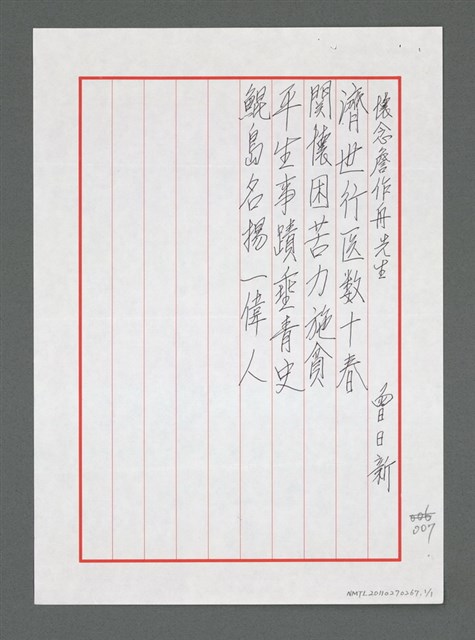 懷念詹作舟先生 曾日新
濟世行医数十春
関懷困苦力施貧
平生事蹟垂青史
鯤島名揚一偉人
006
007
NMTL20110270267,1/1